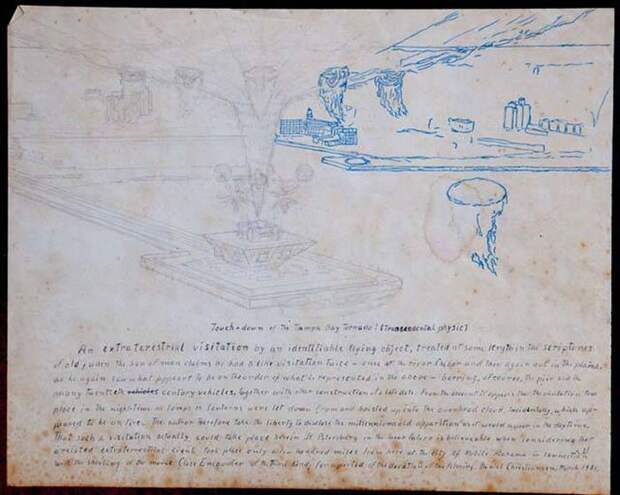 Touch-down of the Tampa Bay Tornado! (Transcendental physic)
An extraterestrial visitation by an identifiable flying object, treated at some length in the scriptures
of old, when the son of man claims he had a like visitation twice - once at the river and then again out in the plains,
as he again saw what appears to be on the order of what's represented in the above - barring, of course, the pier and the
many twentieth century vehicles, together with other construction of a late date. From the account it appears that the visitation took
place in the nighttime as lamps or lanterns were let down from and hoisted up into the overhead cloud, incidentally, which ap-
peared to be on fire. The author therefore take the liberty to disclose the millennium old apparition as it would appear in the daytime.
That such a visitation actually could take place herein St. Petersburg in the near future is believable when considering that
a related extraterrestrial event took place only a few hundred miles from here at the City of Mobile Alabama in connection
with the shooting of the movie Close Encounter of the Third Kind, for reported of the Daniel Christiansen, March 1981